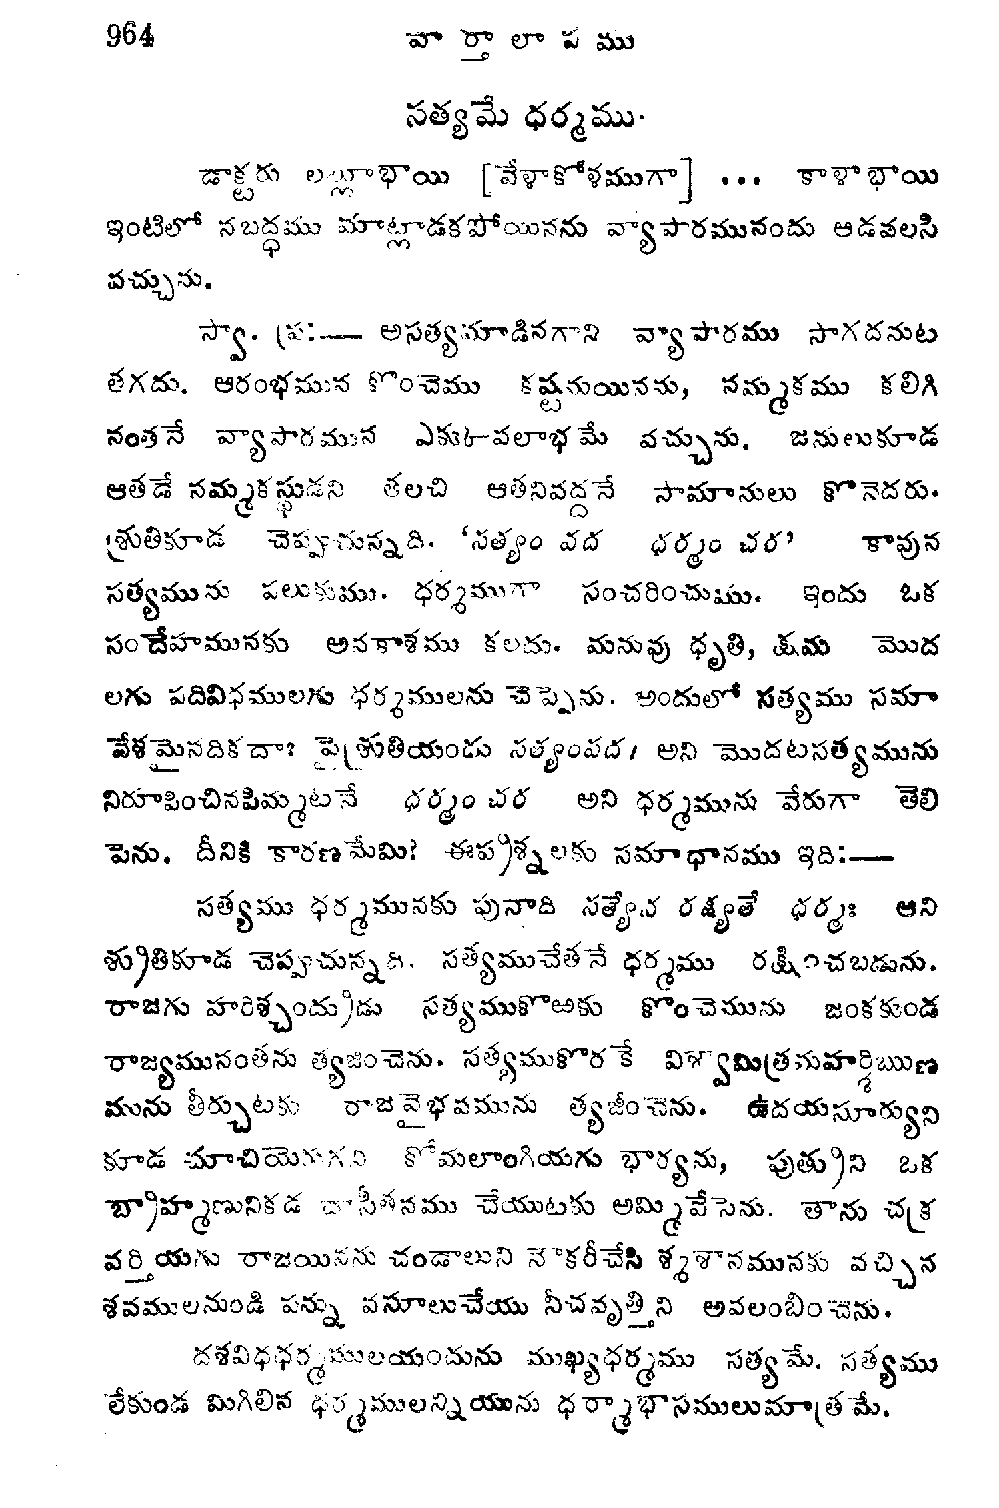 964
వార్తాలాపము
సత్యమే ధర్మము.
డాక్టరు లల్లూభాయి [వేళాకోళముగా] ... కాళాభాయి
ఇంటిలో నబద్ధము మాట్లాడకపోయినను వ్యాపారమునందు ఆడవలసి
వచ్చును.
స్వా. ప్ర:— అసత్యమాడినగాని వ్యాపారము సాగదనుట
తగదు. ఆరంభమున కొంచెము కష్టమయినను, నమ్మకము కలిగి
నంతనే వ్యాపారమున ఎక్కువలాభమే వచ్చును. జనులుకూడ
ఆతడే నమ్మకస్థుడని తలచి ఆతనివద్దనే సామానులు కొనెదరు.
శ్రుతికూడ చెప్పుచున్నది. ‘సత్యం వద ధర్మం చర’ కావున
సత్యమును పలుకుము. ధర్మముగా సంచరించుము. ఇందు ఒక
సందేహమునకు అవకాశము కలదు. మనువు ధృతి, క్షమ మొద
లగు పదివిధములగు ధర్మములను చెప్పెను. అందులో సత్యము సమా
వేశమైనదికదా? పైశ్రుతియందు సత్యంవద। అని మొదటసత్యమును
నిరూపించినపిమ్మటనే ధర్మం చర అని ధర్మమును వేరుగా తెలి
పెను. దీనికి కారణమేమి? ఈప్రశ్నలకు సమాధానము ఇది:—
సత్యము ధర్మమునకు పునాది సత్యేన రక్ష్యతే ధర్మః అని
శ్రుతికూడ చెప్పుచున్నది. సత్యముచేతనే ధర్మము రక్షించబడును.
రాజగు హరిశ్చంద్రుడు సత్యముకొఱకు కొంచెమును జంకకుండ
రాజ్యమునంతను త్యజించెను. సత్యముకొరకే విశ్వామిత్రమహర్షిఋణ
మును తీర్చుటకు రాజవైభవమును త్యజించెను. ఉదయసూర్యుని
కూడ చూచియెరుగని కోమలాంగియగు భార్యను, పుత్రుని ఒక
బ్రాహ్మణునికడ దాసీతనము చేయుటకు అమ్మివేసెను. తాను చక్ర
వర్తియగు రాజయినను చండాలుని నౌకరీచేసి శ్మశానమునకు వచ్చిన
శవములనుండి పన్ను వసూలుచేయు నీచవృత్తిని అవలంబించెను.
దశవిధధర్మములయందును ముఖ్యధర్మము సత్యమే. సత్యము
లేకుండ మిగిలిన ధర్మములన్నియును ధర్మాభాసములుమాత్రమే.